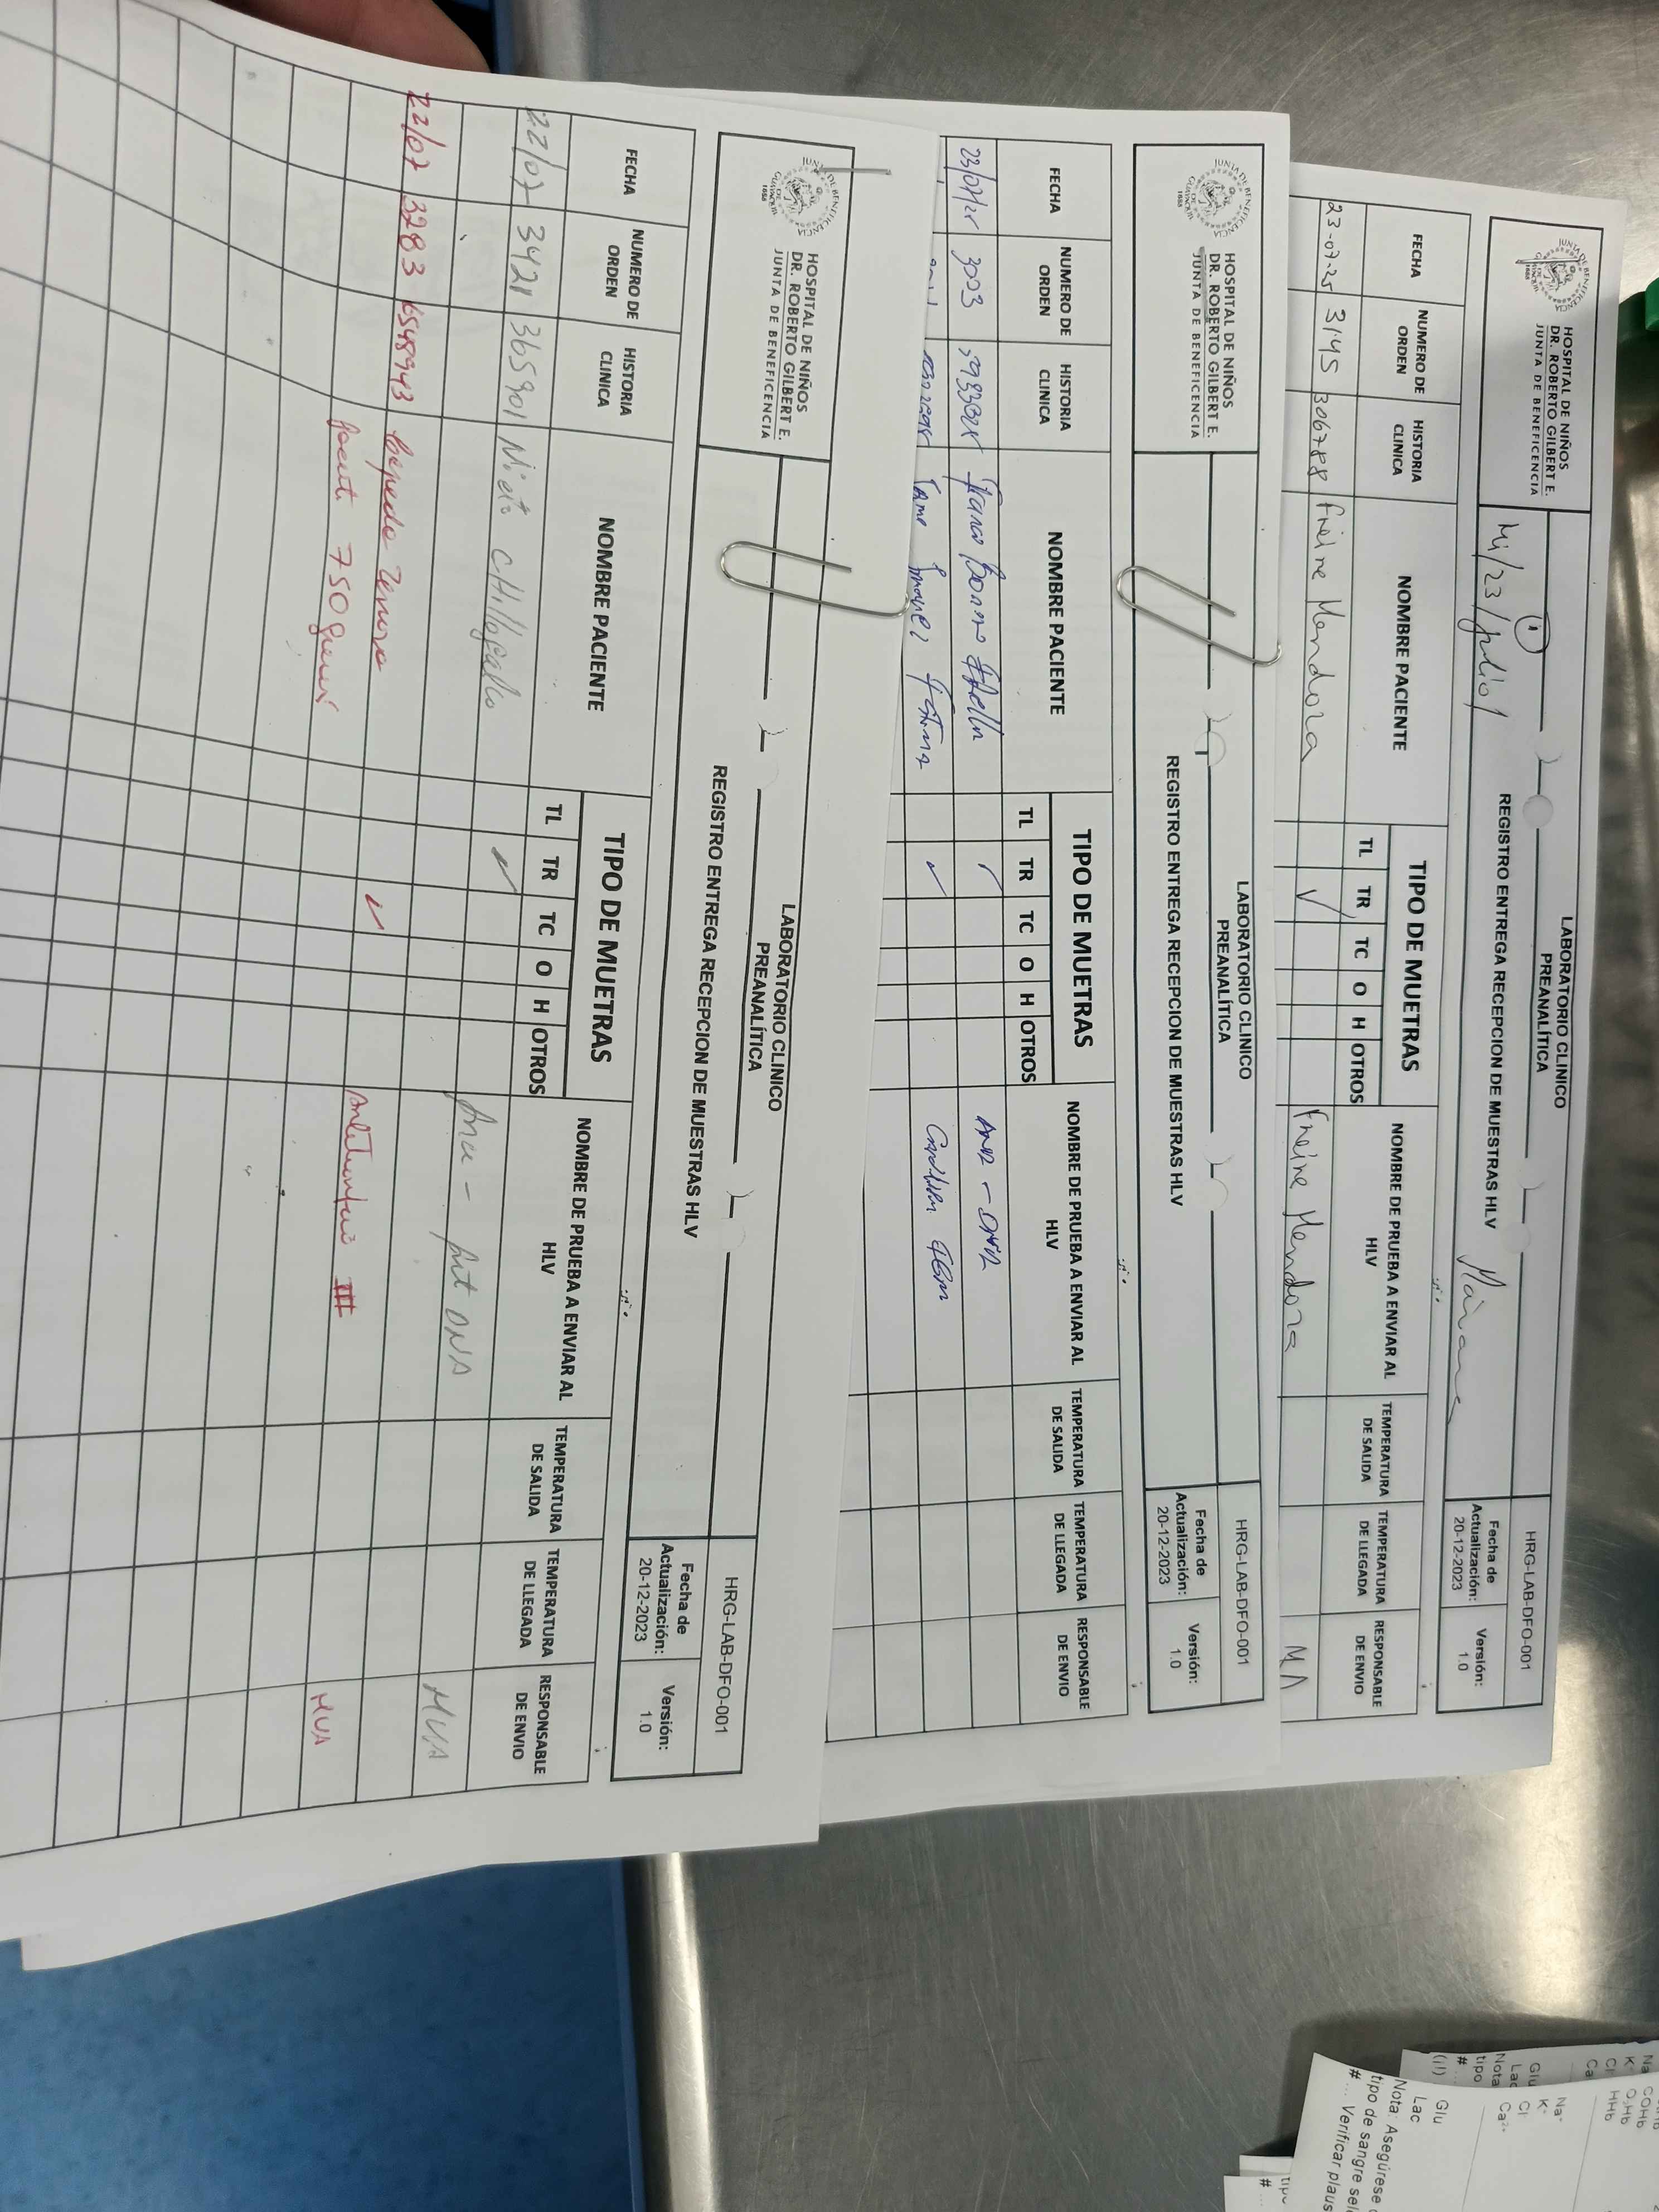 JUNTA DE BENEFICENCIA DE GUAYAQUIL
1888
HOSPITAL DE NIÑOS
DR. ROBERTO GILBERT E.
JUNTA DE BENEFICENCIA
LABORATORIO CLINICO
PREANALÍTICA
REGISTRO ENTREGA RECEPCION DE MUESTRAS HLV
HRG-LAB-DFO-001
Fecha de
Actualización:
20-12-2023
Versión:
1.0
1
Mi/23/julio/
FECHA
NUMERO DE ORDEN
HISTORIA CLINICA
NOMBRE PACIENTE
TIPO DE MUETRAS
TL TR TC O H OTROS
NOMBRE DE PRUEBA A ENVIAR AL HLV
TEMPERATURA DE SALIDA
TEMPERATURA DE LLEGADA
RESPONSABLE DE ENVIO
23-07-25 3145 306788 Freire Mendoza ✓ Freire Mendoza MA
JUNTA DE BENEFICENCIA DE GUAYAQUIL
1888
HOSPITAL DE NIÑOS
DR. ROBERTO GILBERT E.
JUNTA DE BENEFICENCIA
LABORATORIO CLINICO
PREANALÍTICA
REGISTRO ENTREGA RECEPCION DE MUESTRAS HLV
HRG-LAB-DFO-001
Fecha de
Actualización:
20-12-2023
Versión:
1.0
FECHA
NUMERO DE ORDEN
HISTORIA CLINICA
NOMBRE PACIENTE
TIPO DE MUETRAS
TL TR TC O H OTROS
NOMBRE DE PRUEBA A ENVIAR AL HLV
TEMPERATURA DE SALIDA
TEMPERATURA DE LLEGADA
RESPONSABLE DE ENVIO
23/07/25 3003 Franco ✓
✓
JUNTA DE BENEFICENCIA DE GUAYAQUIL
1888
HOSPITAL DE NIÑOS
DR. ROBERTO GILBERT E.
JUNTA DE BENEFICENCIA
LABORATORIO CLINICO
PREANALÍTICA
REGISTRO ENTREGA RECEPCION DE MUESTRAS HLV
HRG-LAB-DFO-001
Fecha de
Actualización:
20-12-2023
Versión:
1.0
FECHA
NUMERO DE ORDEN
HISTORIA CLINICA
NOMBRE PACIENTE
TIPO DE MUETRAS
TL TR TC O H OTROS
NOMBRE DE PRUEBA A ENVIAR AL HLV
TEMPERATURA DE SALIDA
TEMPERATURA DE LLEGADA
RESPONSABLE DE ENVIO
22/07 3421 365901 Nieto chillogallo ✓
DNA MVA
22/07 3283 6548943 Cepeda ✓
750 III MVA
Na
K
Cl
Ca
COHb
O₂Hb
HHb
Glu
Lac
Nota
tipo
#
Na⁺
K⁺
Cl
Ca²⁺
(!)
Glu
Lac
Nota: Asegúrese
tipo de sangre sel
# ... Verificar plaus
#